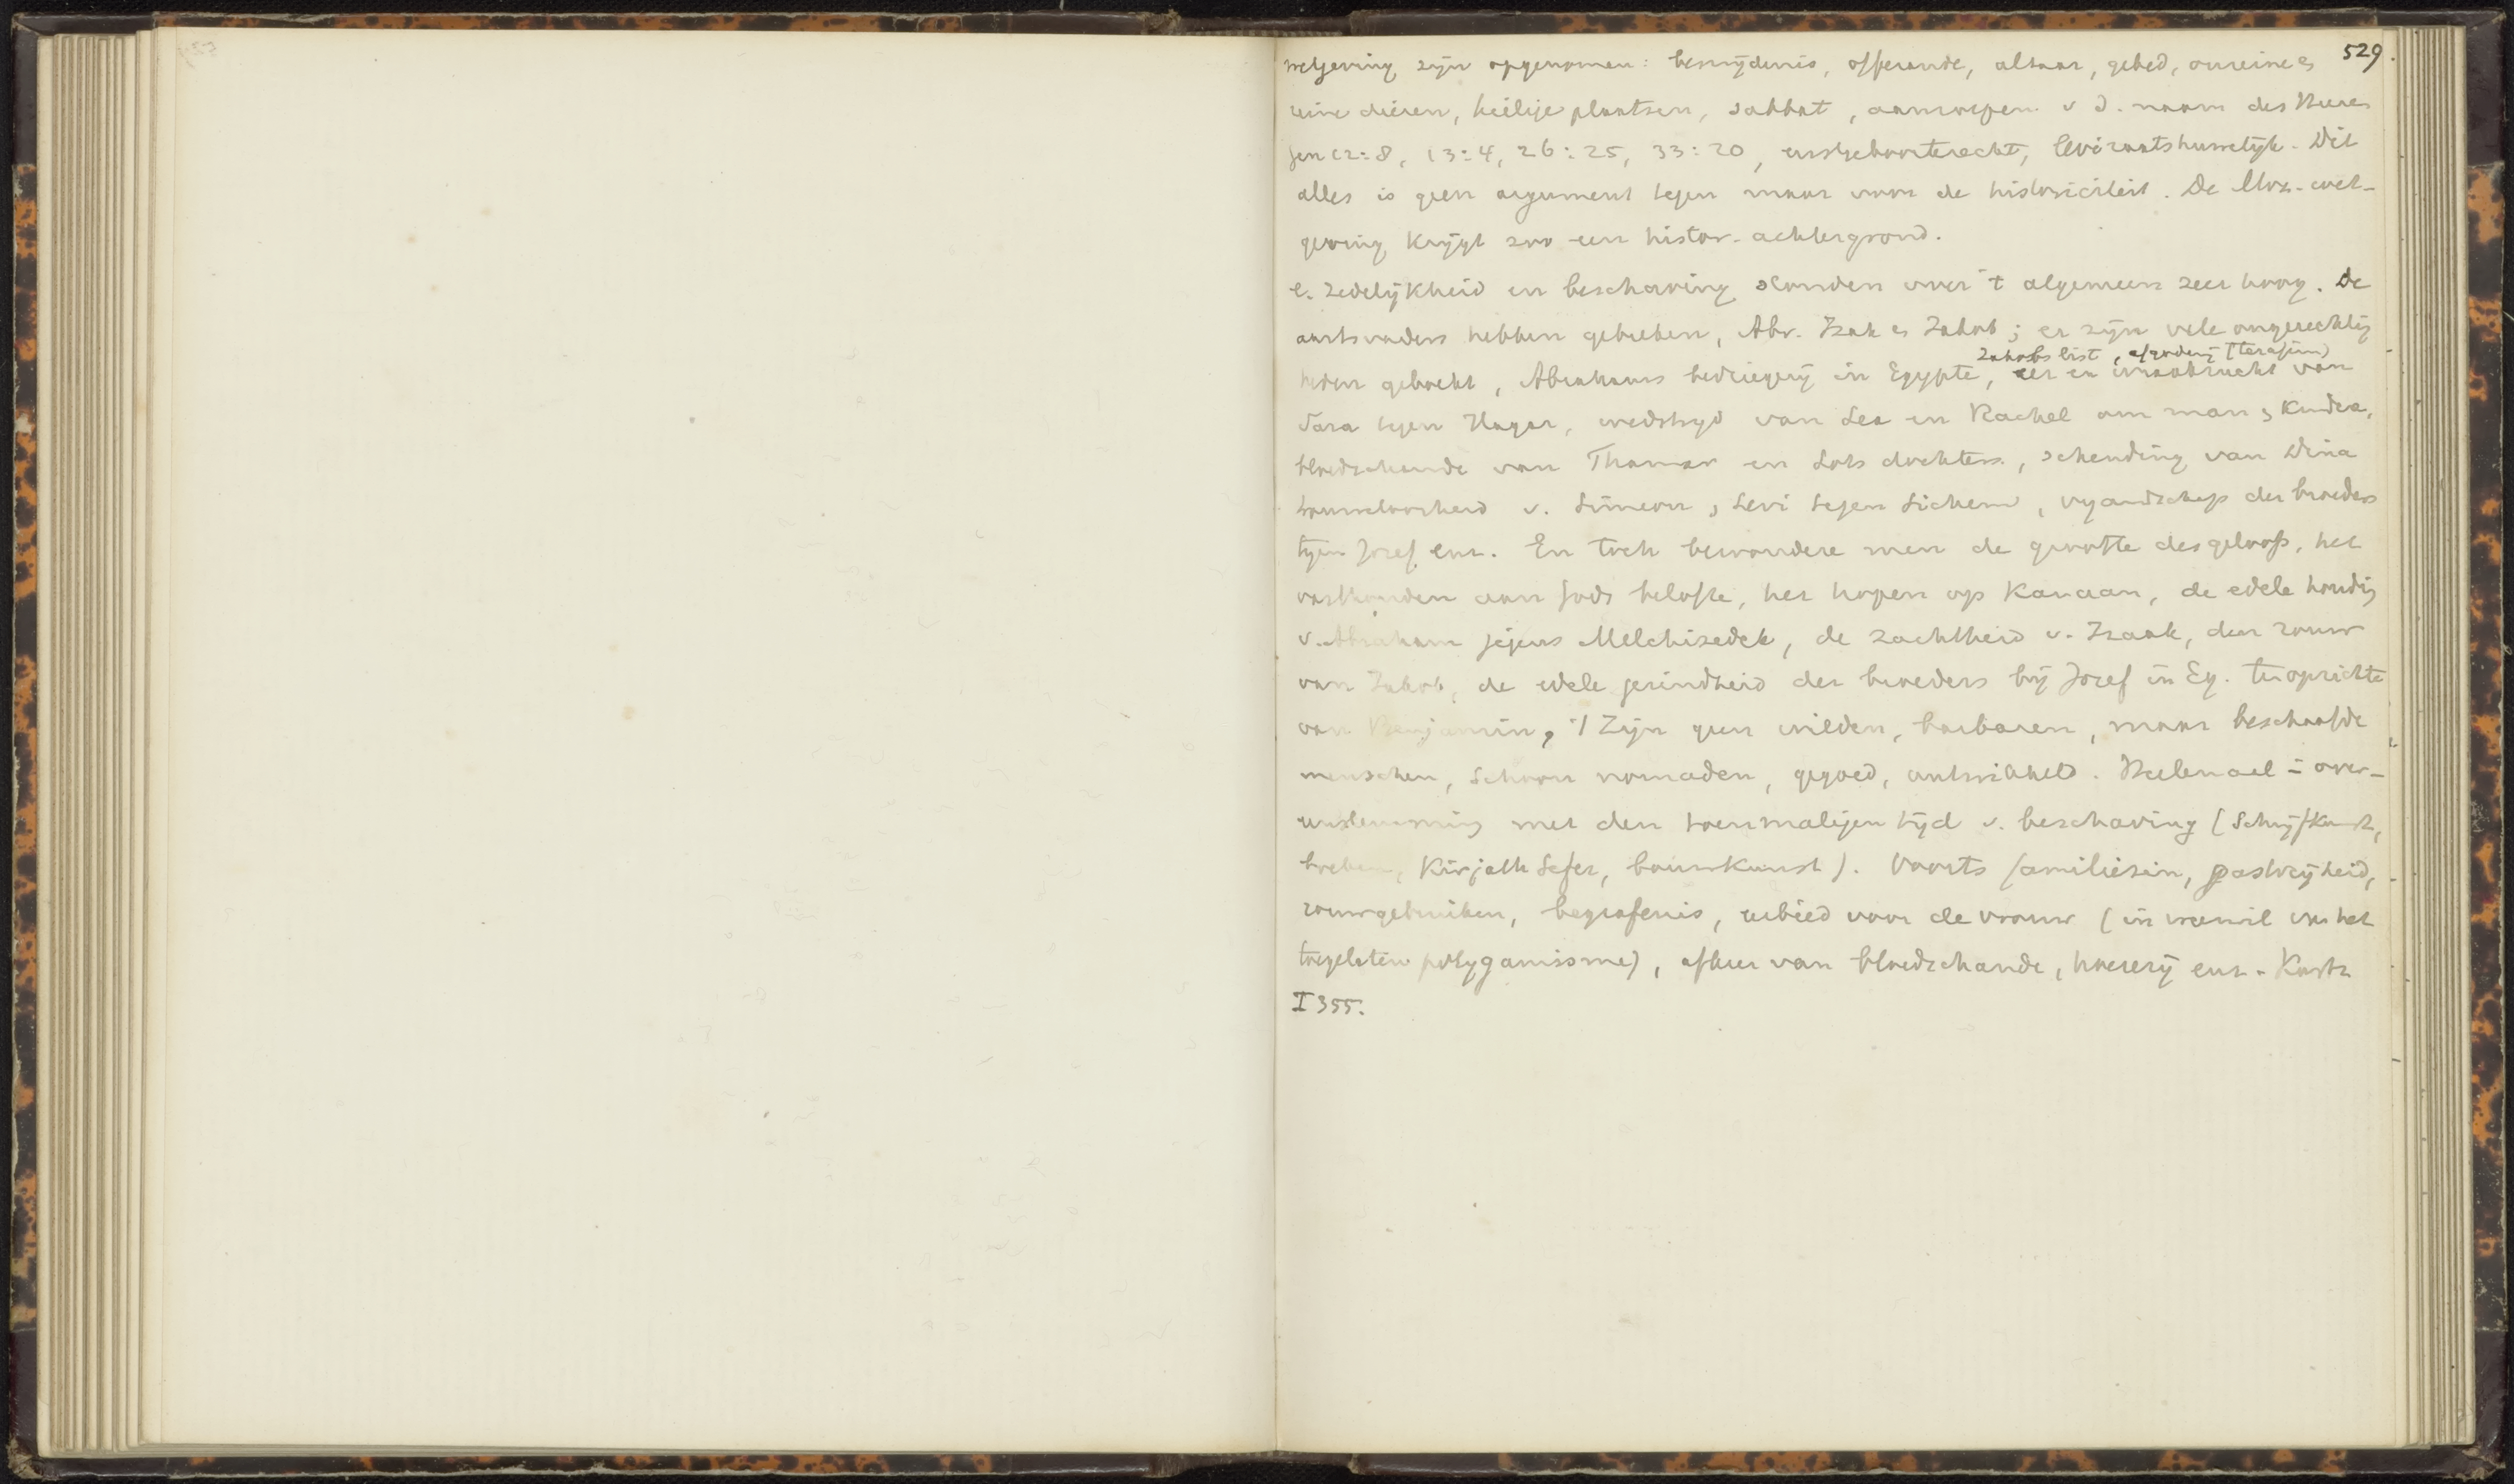 529.
wetgeving zijn opgenomen: besnijdenis, offerande, altaar, gebed, onreine &
reine dieren, heilige plaatsen, sabbat, aanroepen v d. naam des Heeren
Gen 12:8, 13:4, 26:25, 33:20, eerstgeboorterecht, leviraatshuwelijk. Dit
alles is geen argument tegen maar voor de historiciteit. De Moz. wet-
geving krijgt zoo een histor. achtergrond.
e. Zedelijkheid en beschaving stonden over 't algemeen zeer hoog. De
aartsvaders hebben gebreken, Abr. Izak & Jakob; er zijn vele ongerechtig
Jakobs list, afgoderij (terafim)
heden gebeurd, Abrahams bedriegerij in Egypte, en wraakzucht van
Sara tegen Hagar, wedstrijd van Lea en Rachel om man & kinderen,
bloedschande van Thamar en Lots dochters, schending van Dina
trouweloosheid v. Simeon & Levi tegen Sichem, vijandschap der broeders
tegen Jozef enz. En toch bewondere men de grootte des geloofs, het
vasthouden aan Gods belofte, het hopen op Kanaan, de edele houding
v. Abraham jegens Melchizedek, de zachtheid v. Izaak, den rouw
van Jakob, de edele gezindheid der broeders bij Jozef in Eg. ten opzichte
van Benjamin, 't Zijn geen wilden, barbaren, maar beschaafde
menschen, schoon nomaden, gegoed, ontwikkeld. Heelemaal in over-
eenstemming met den toenmaligen tijd v. beschaving (Schrijfkunst,
boeken, Kirjath Sefer, bouwkunst). Voorts familiezin, gastvrijheid,
rouwgebruiken, begrafenis, eerbied voor de vrouw (in weerwil van het
toegelaten polygamisme), afkeer van bloedschande, hoererij enz. Kurtz
I 355.